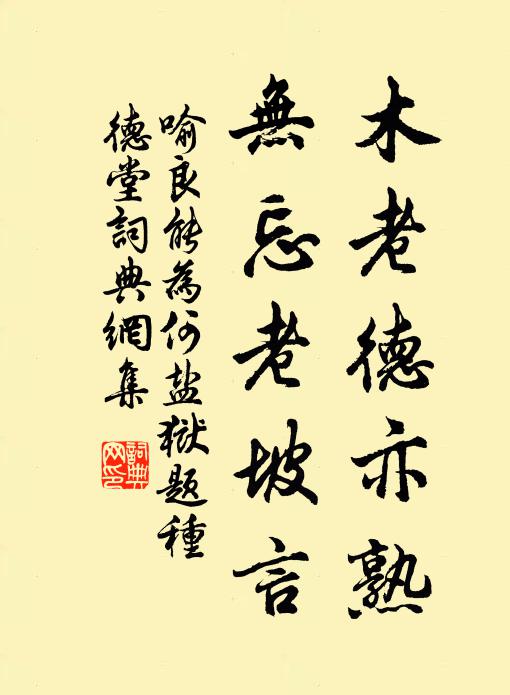 木老德亦熟
無忘老坡言
喻良能為何盐獄題種
德堂詞典網集
詞典
网印